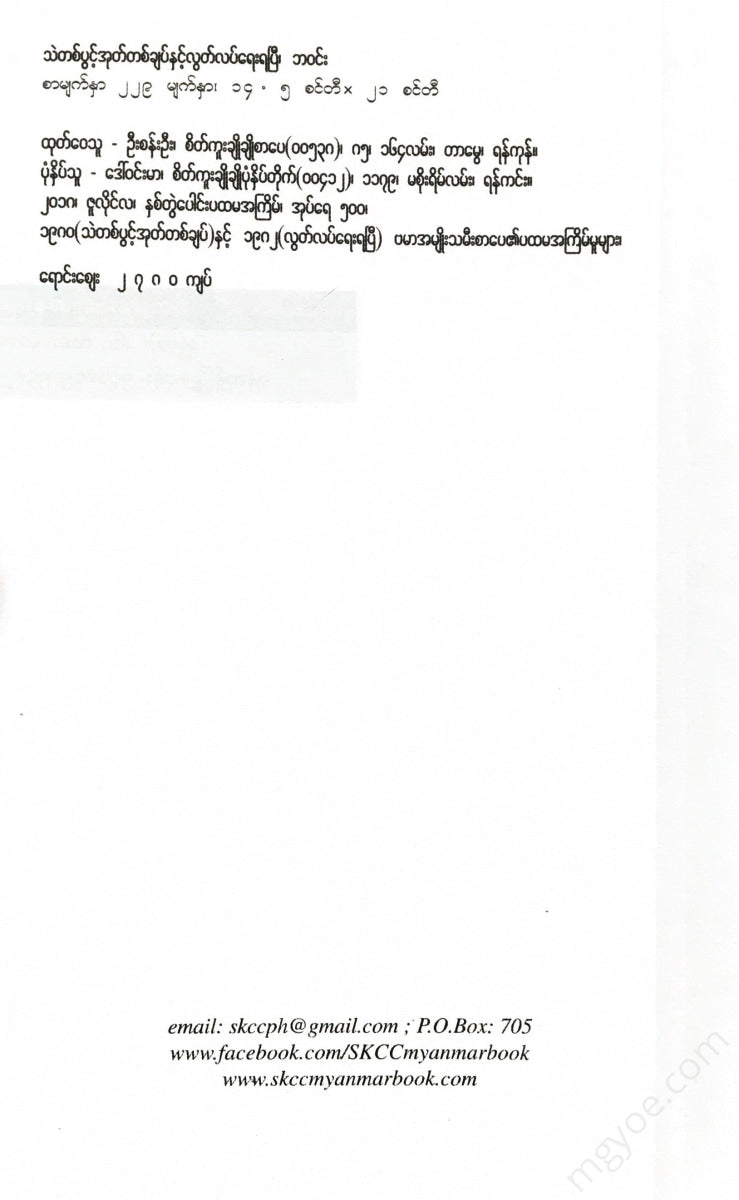 သဲတစ်ပွင့်အုတ်တစ်ချပ်နှင့်လွတ်လပ်ရေးရပြီ၊ ဘဝင်း
စာမျက်နှာ ၂၂၉ မျက်နှာ၊ ၁၄ . ၅ စင်တီ× ၂၁ စင်တီ
ထုတ်ဝေသူ - ဦးစန်းဦး၊ စိတ်ကူးချိုချိုစာပေ(၀၀၅၃၈)၊ ၈၅၊ ၁၆၄လမ်း၊ တာမွေ၊ ရန်ကုန်။
ပုံနှိပ်သူ - ဒေါ်ဝင်းမာ၊ စိတ်ကူးချိုချိုပုံနှိပ်တိုက်(၀၀၄၁၂)၊ ၁၁၇၉၊ မစိုးရိမ်လမ်း၊ ရန်ကင်း။
၂၀၁၈၊ ဇူလိုင်လ၊ နှစ်တွဲပေါင်းပထမအကြိမ်၊ အုပ်ရေ ၅၀၀၊
၁၉၈၀(သဲတစ်ပွင့်အုတ်တစ်ချပ်)နှင့် ၁၉၈၂(လွတ်လပ်ရေးရပြီ) ဗမာအမျိုးသမီးစာပေ၏ပထမအကြိမ်မူများ၊
ရောင်းဈေး ၂ ၇ ၈ ၀ ကျပ်
email: skccph@gmail.com ; P.O.Box: 705
www.facebook.com/SKCCmyanmarbook
www.skccmyanmarbook.com
mgyoe.com